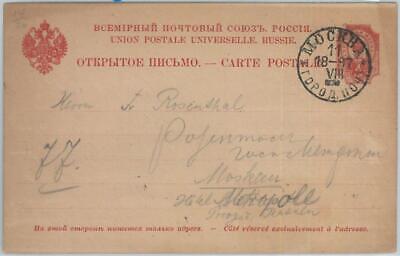 ВСЕМІРНЫЙ ПОЧТОВЫЙ СОЮЗЪ. РОССІЯ.
UNION POSTALE UNIVERSELLE. RUSSIE.
ОТКРЫТОЕ ПИСЬМО. — CARTE POSTALE
МОСКВА
11
18-97
VIII
ГОРОД. ПОЧ
Herrn A Rosenthal
Moskau
Hotel Metropole
На этой сторонѣ пишется только адресъ. — Côté réservé exclusivement à l'adresse.